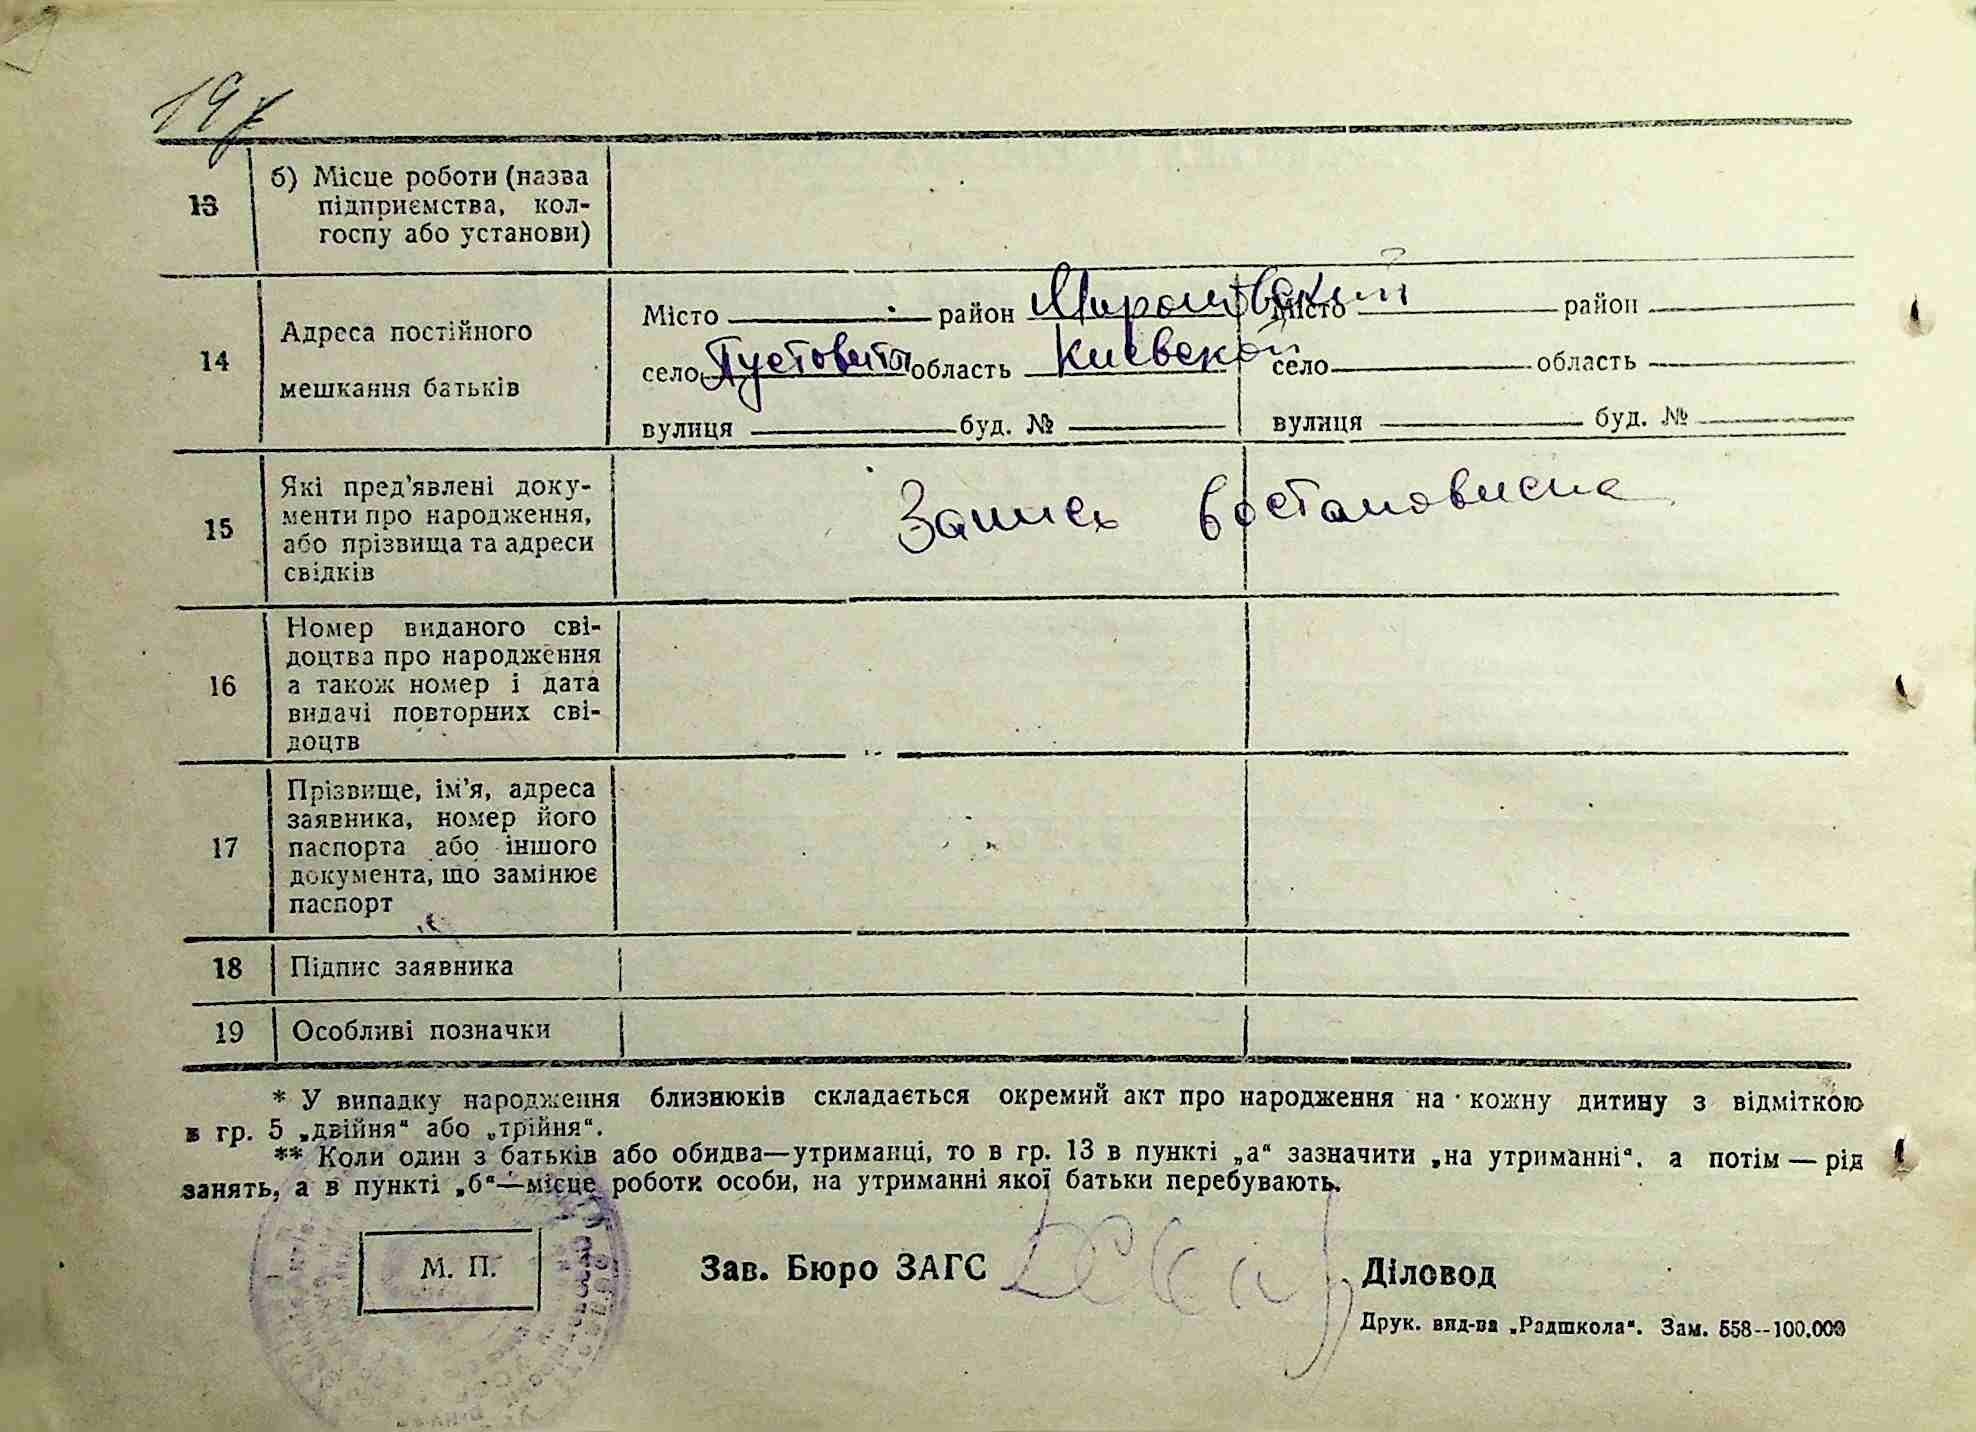 197
13 б) Місце роботи (назва
підприємства, кол-
госпу або установи)
14 Адреса постійного
мешкання батьків
Місто район Мироновский Місто район
село Пустовиты область Киевской село область
вулиця буд. № вулиця буд. №
15 Які пред'явлені доку-
менти про народження,
або прізвища та адреси
свідків
Запись востановлена
16 Номер виданого сві-
доцтва про народження
а також номер і дата
видачі повторних сві-
доцтв
17 Прізвище, ім'я, адреса
заявника, номер його
паспорта або іншого
документа, що замінює
паспорт
18 Підпис заявника
19 Особливі позначки
* У випадку народження близнюків складається окремий акт про народження на кожну дитину з відміткою
в гр. 5 „двійня“ або „трійня“.
** Коли один з батьків або обидва—утриманці, то в гр. 13 в пункті „а“ зазначити „на утриманні“, а потім — рід
занять, а в пункті „б“—місце роботи особи, на утриманні якої батьки перебувають.
М. П. Зав. Бюро ЗАГС Діловод
Друк. вид-ва „Радшкола“. Зам. 558--100.000